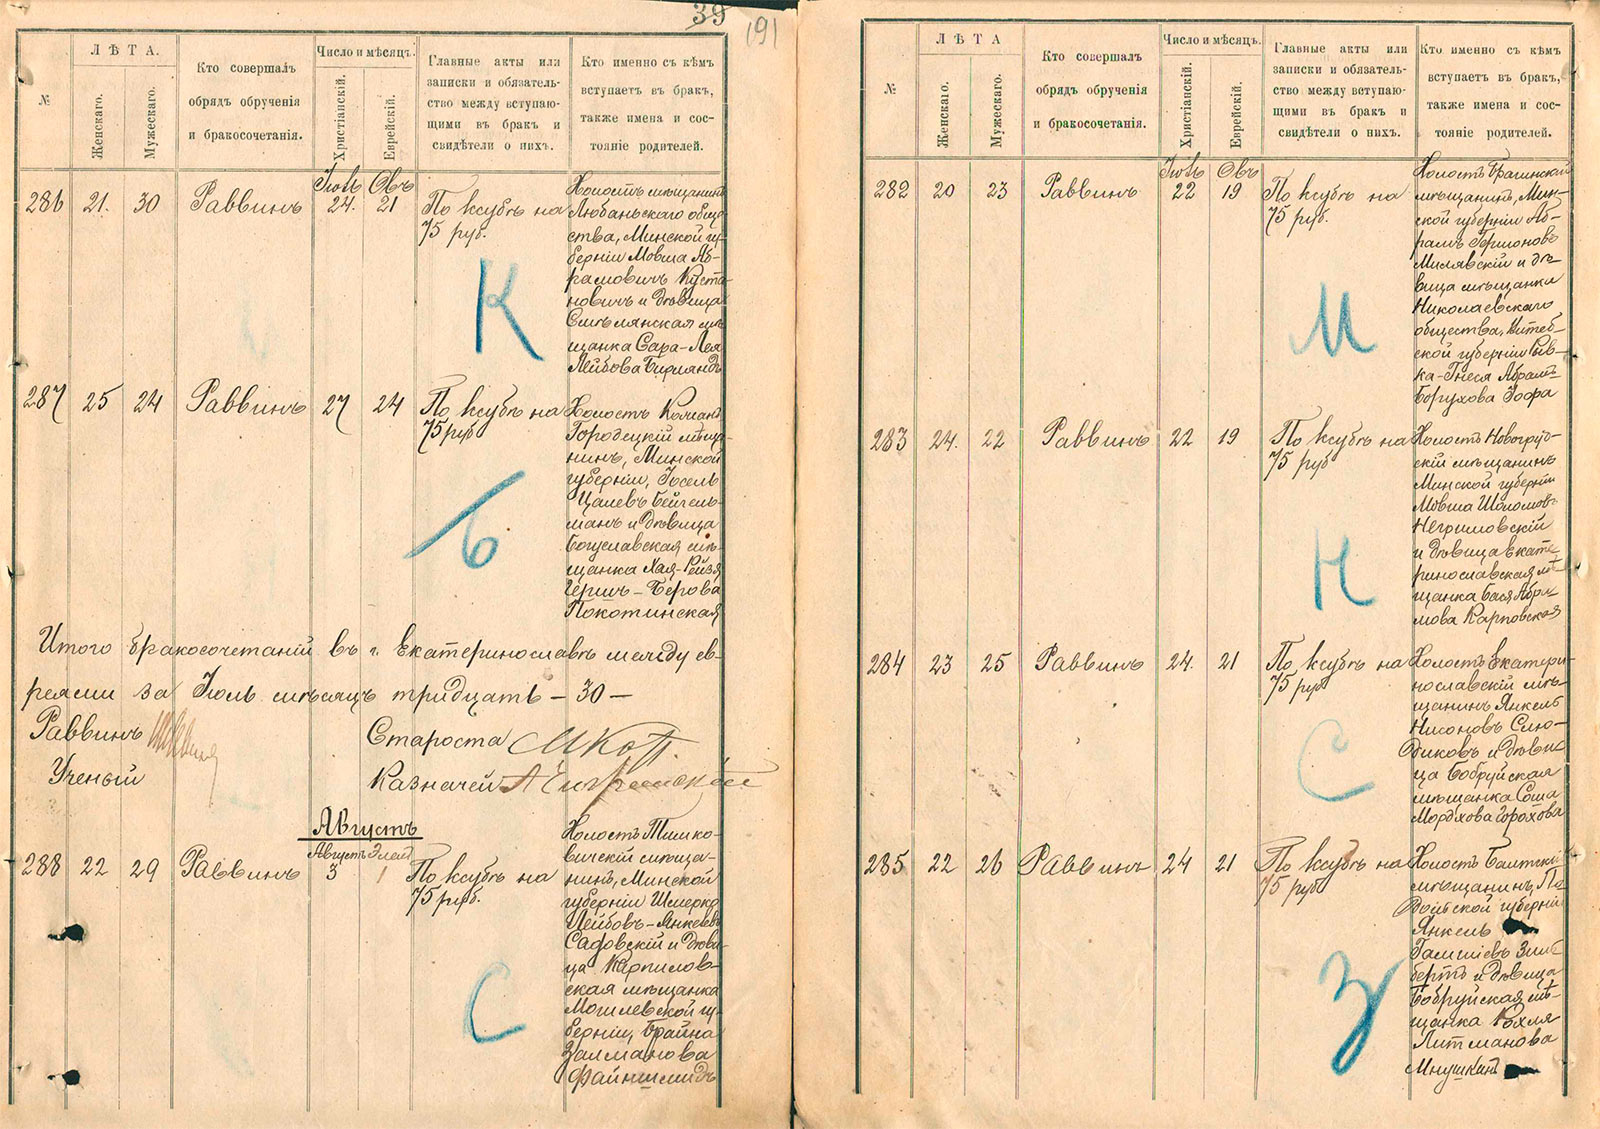 39
191
№
ЛѢТА.
Женскаго.
Мужескаго.
Кто совершалъ
обрядъ обрученія
и бракосочетанія.
Число и мѣсяцъ.
Христіанскій.
Еврейскій.
Главные акты или
записки и обязатель-
ство между вступаю-
щими въ бракъ и
свидѣтели о нихъ.
Кто именно съ кѣмъ
вступаетъ въ бракъ,
также имена и сос-
тояніе родителей.
286 21. 30 Раввинъ
Іюль Овъ
24. 21
По ксубѣ на
75 руб.
К
Холостъ мѣщанинъ
Любаньскаго обще-
ства, Минской гу-
берніи Мовша Аб-
рамовичъ Куста-
новичъ и дѣвица
Смѣлянская мѣ-
щанка Сара-Лея
Лейбова Бирляндъ
287 25 24 Раввинъ 27 24
По ксубѣ на
75 руб
Б
Холостъ Кожан-
Городецкій мѣща-
нинъ, Минской
губерніи, Іосель
Цалевъ Бейгель-
манъ и дѣвица
Богуславская мѣ-
щанка Хая-Рейзя
Гершъ-Берова
Покотинская
Итого бракосочетаній въ г. Екатеринославѣ между ев-
реями за Іюль мѣсяцъ тридцать - 30 -
Раввинъ
Староста
Ученый
Казначей
Августъ
288 22 29 Раввинъ
Августъ Элелъ
3 1
По ксубѣ на
75 руб.
С
Холостъ Тимко-
вичскій мѣща-
нинъ, Минской
губерніи Шмерко
Лейбовъ-Янкелевъ
Садовскій и дѣви-
ца Карпилов-
ская мѣщанка
Могилевской гу-
берніи, Брайна
Залманова
Файншмидъ
№
ЛѢТА
Женскаго.
Мужескаго.
Кто совершалъ
обрядъ обрученія
и бракосочетанія.
Число и мѣсяцъ.
Христіанскій.
Еврейскій.
Главные акты или
записки и обязатель-
ство между вступаю-
щими въ бракъ и
свидѣтели о нихъ.
Кто именно съ кѣмъ
вступаетъ въ бракъ,
также имена и сос-
тояніе родителей.
282 20 23 Раввинъ
Іюль Овъ
22 19
По ксубѣ на
75 руб.
М
Холостъ Брагинскій
мѣщанинъ, Мин-
ской губерніи Аб-
рамъ Гершоновъ
Милявскій и дѣ-
вица мѣщанка
Николаевскаго
общества, Витеб-
ской губерніи Рыв-
ка-Гнеся Абрамъ-
Борухова Іоффа
283 24. 22 Раввинъ 22 19
По ксубѣ на
75 руб
Н
Холостъ Новогруд-
скій мѣщанинъ
Минской губерніи
Мовша Шоломовъ
Негримовскій
и дѣвица Екате-
ринославская мѣ-
щанка Бася Абра-
мова Карповская
284 23 25 Раввинъ 24. 21
По ксубѣ на
75 руб
С
Холостъ Екатери-
нославскій мѣ-
щанинъ Янкель
Нисоновъ Слю-
диковъ и дѣви-
ца Бобруйская
мѣщанка Соша
Мордхова Горохова
285 22 26 Раввинъ 24 21
По ксубѣ на
75 руб
З
Холостъ Балтскій
мѣщанинъ, По-
дольской губерніи
Янкель
Гамшіевъ Зиль-
бертъ и дѣвица
Бобруйская мѣ-
щанка Рохля
Литманова
Мнушкинъ